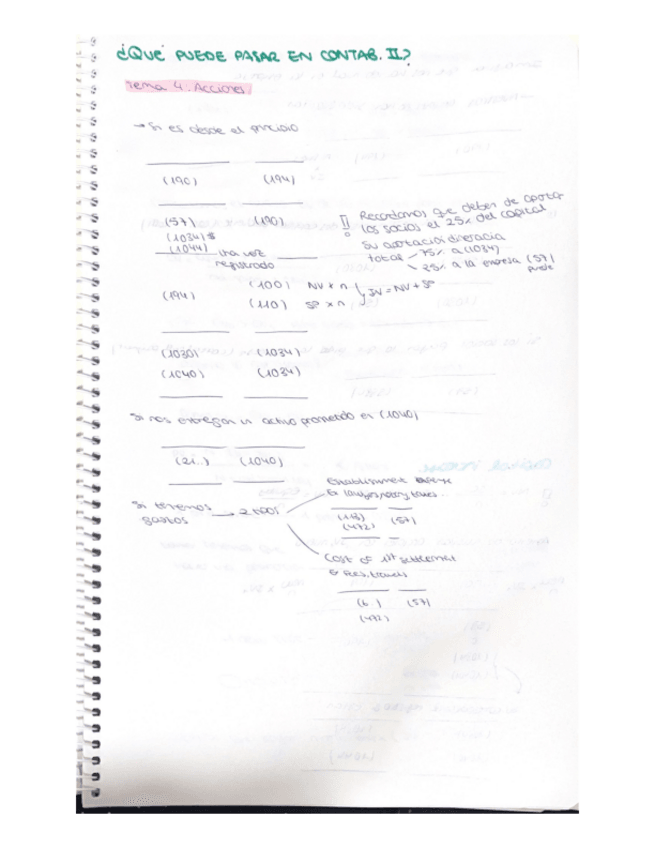 ¿QUÉ PUEDE PASAR EN CONTAB. II?
Tema 4. Acciones.
→ Si es desde el principio
(190) (194)
(57) (190)
(1034) $
(1044) una vez
registrado
!! Recordamos que deben de aportar
los socios el 25% del capital
Su aportación dineraria
total 75% a (1034)
25% a la empresa (57)
(194) (100) NV × n
(110) SP × n
IV = NV + SP
(1030) (1034)
(1040) (1034)
Si nos entregan un activo prometido en (1040)
(21..) (1040)
Si tenemos
gastos → 2 cases
Establishment
(113) (57)
(472)
Cost of 1st settlement
(6..) (57)
(472)